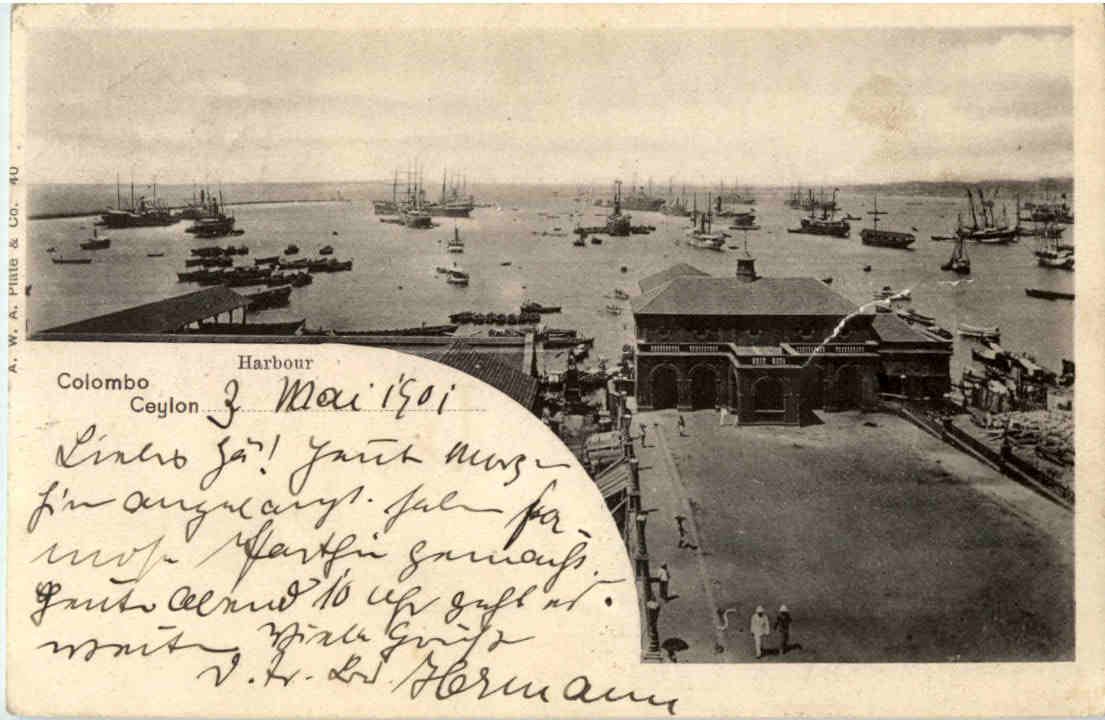 A. W. A. Plâté & Co. 40
Harbour
Colombo
Ceylon Mai 1901
Liebes Heute Morgen
hier angelangt. haben fa-
mose Parthie gemacht.
Heute Abend 10 Uhr geht es
weiter Viele Grüße
D. tr. Brd. Hermann